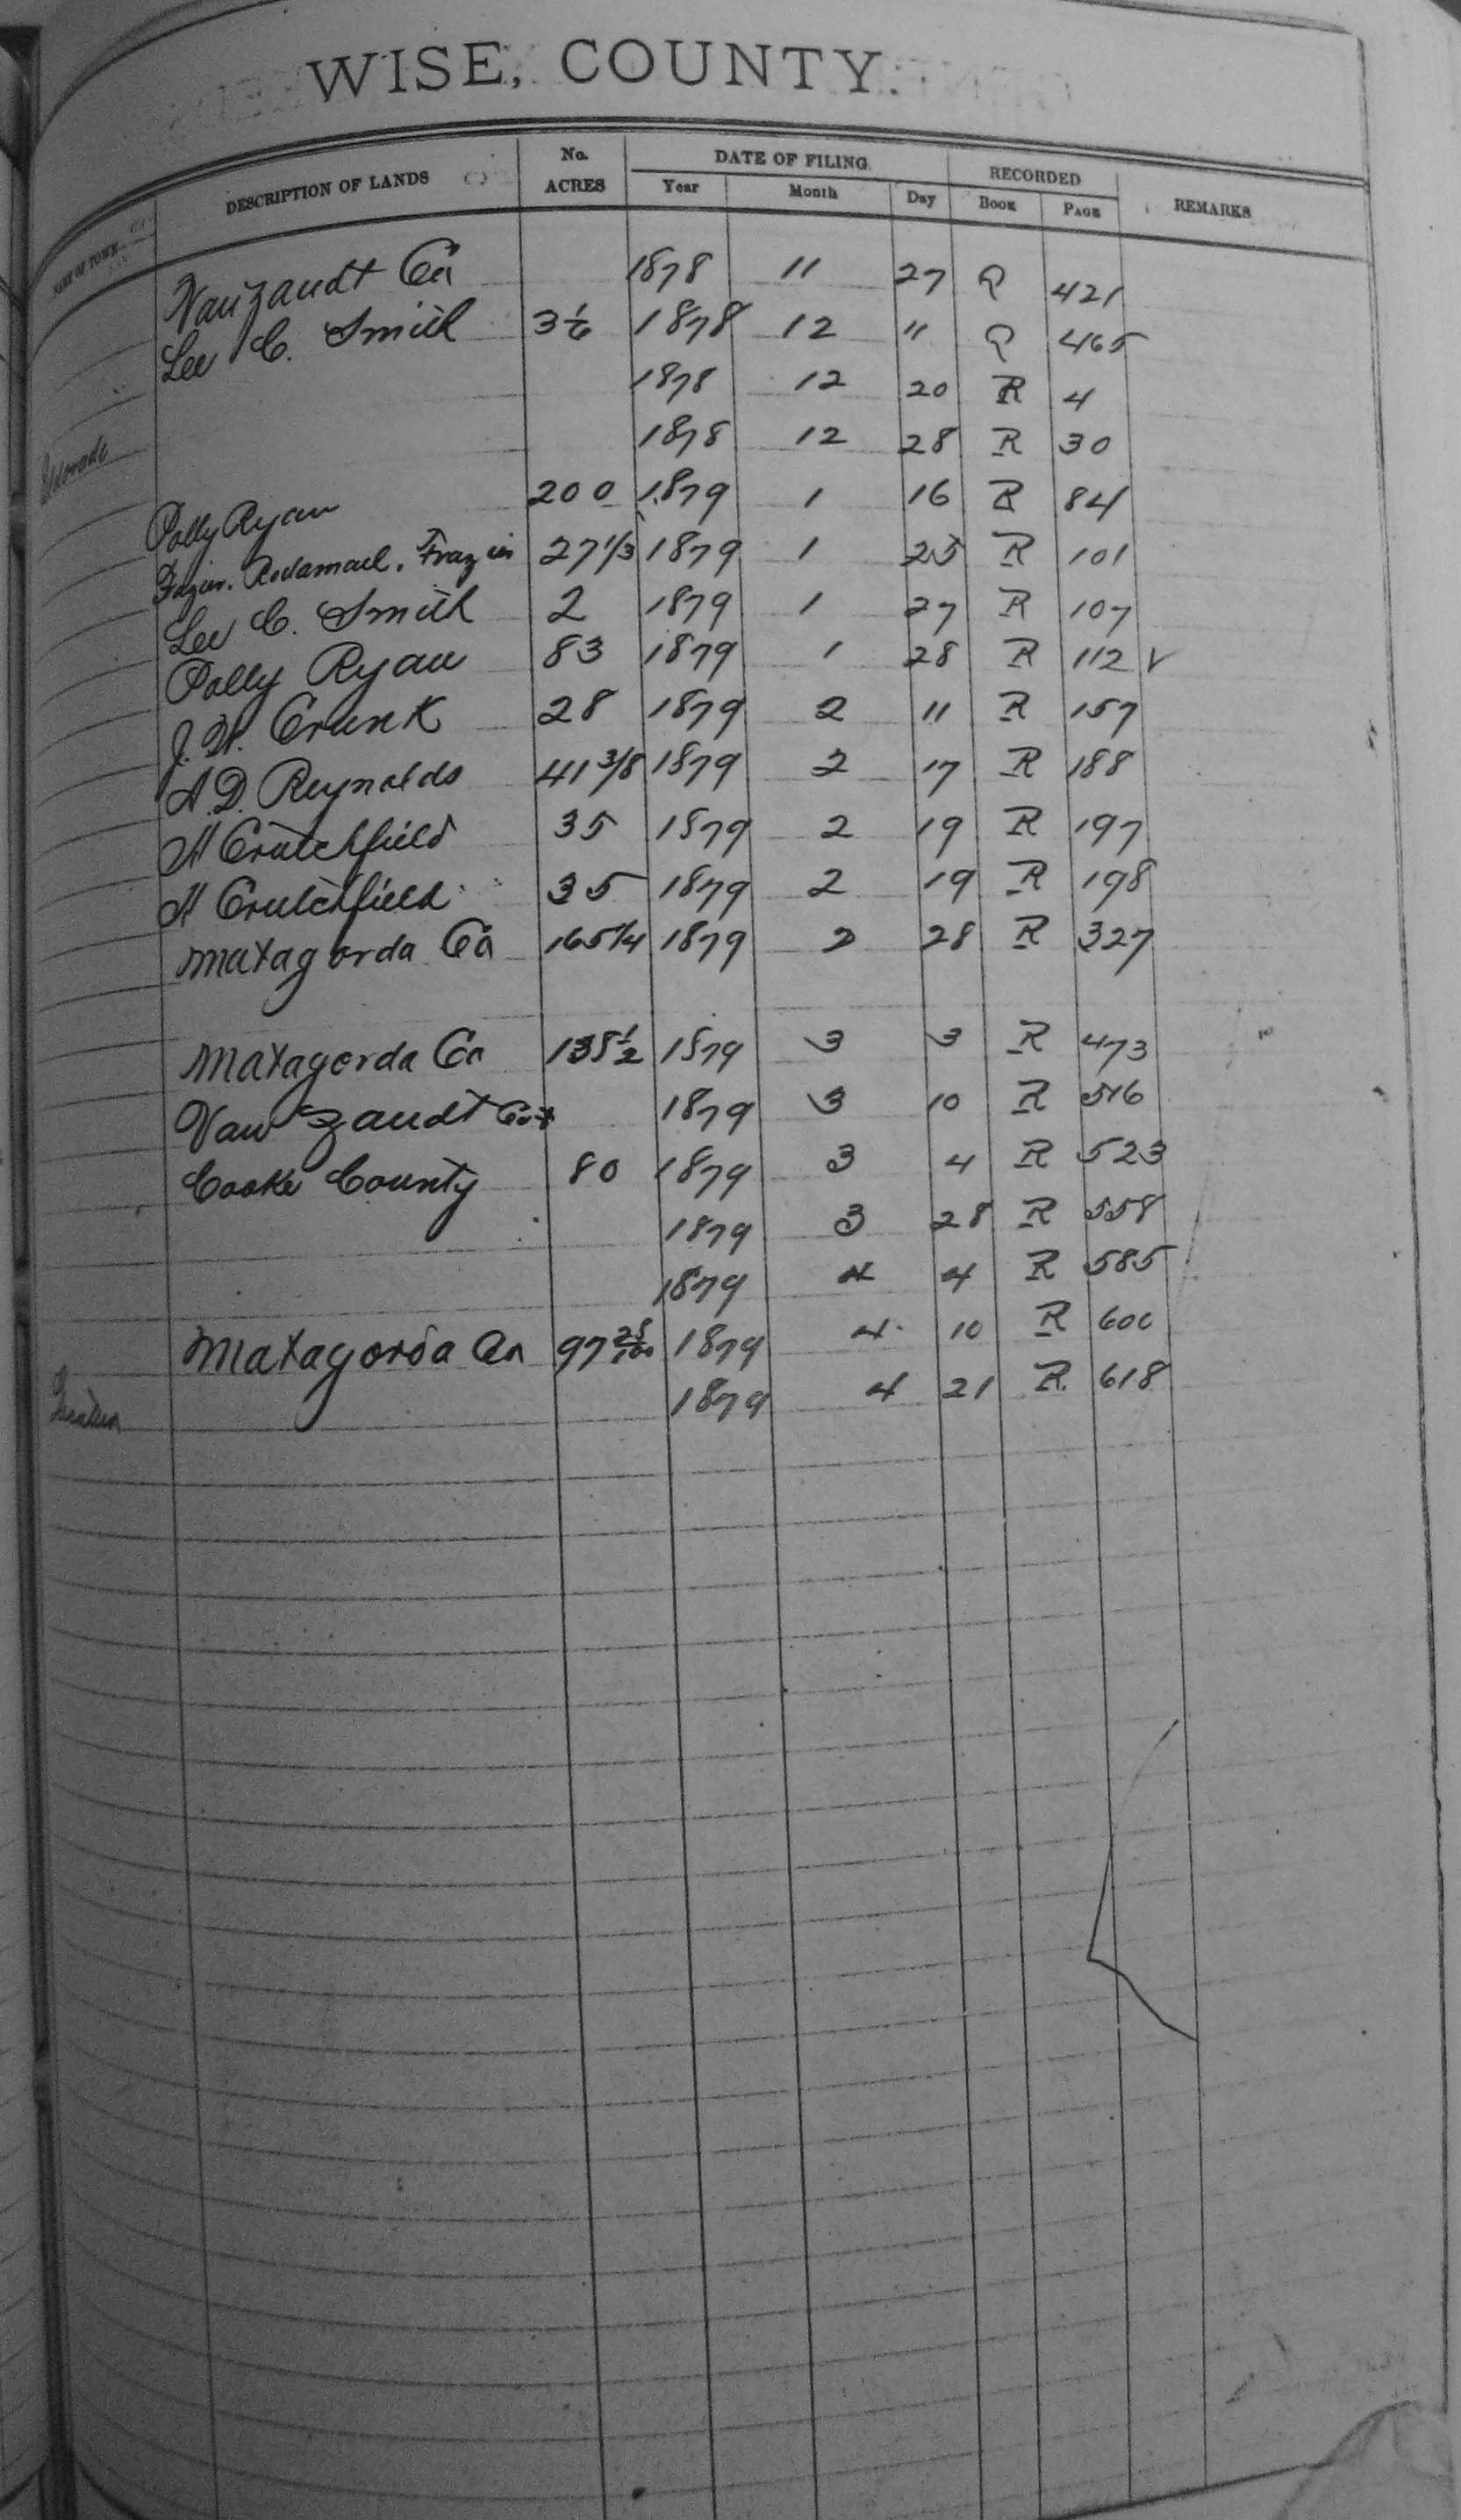 WISE, COUNTY.
NAME OF TOWN DESCRIPTION OF LANDS No. ACRES DATE OF FILING Year Month Day RECORDED BOOK PAGE REMARKS
Vanzandt Co 1878 11 27 Q 421
Lee C. Smith 3 1/6 1878 12 " Q 465
1878 12 20 R 4
1878 12 28 R 30
Polly Ryan 200 1879 1 16 R 84
Frazier 27 1/3 1879 1 25 R 101
Lee C. Smith 2 1879 1 27 R 107
Polly Ryan 83 1879 1 28 R 112 v
J. W. Crunk 28 1879 2 11 R 157
A. D. Reynolds 41 3/8 1879 2 17 R 188
H Crutchfield 35 1879 2 19 R 197
H Crutchfield 35 1879 2 19 R 198
Matagorda Co 165 1/4 1879 2 28 R 327
Matagorda Co 138 1/2 1879 3 3 R 473
Van Zandt Co 1879 3 10 R 516
Cooke County 80 1879 3 4 R 523
1879 3 28 R 558
1879 4 4 R 585
Matagorda Co 97 25/100 1879 4 10 R 600
1879 4 21 R. 618